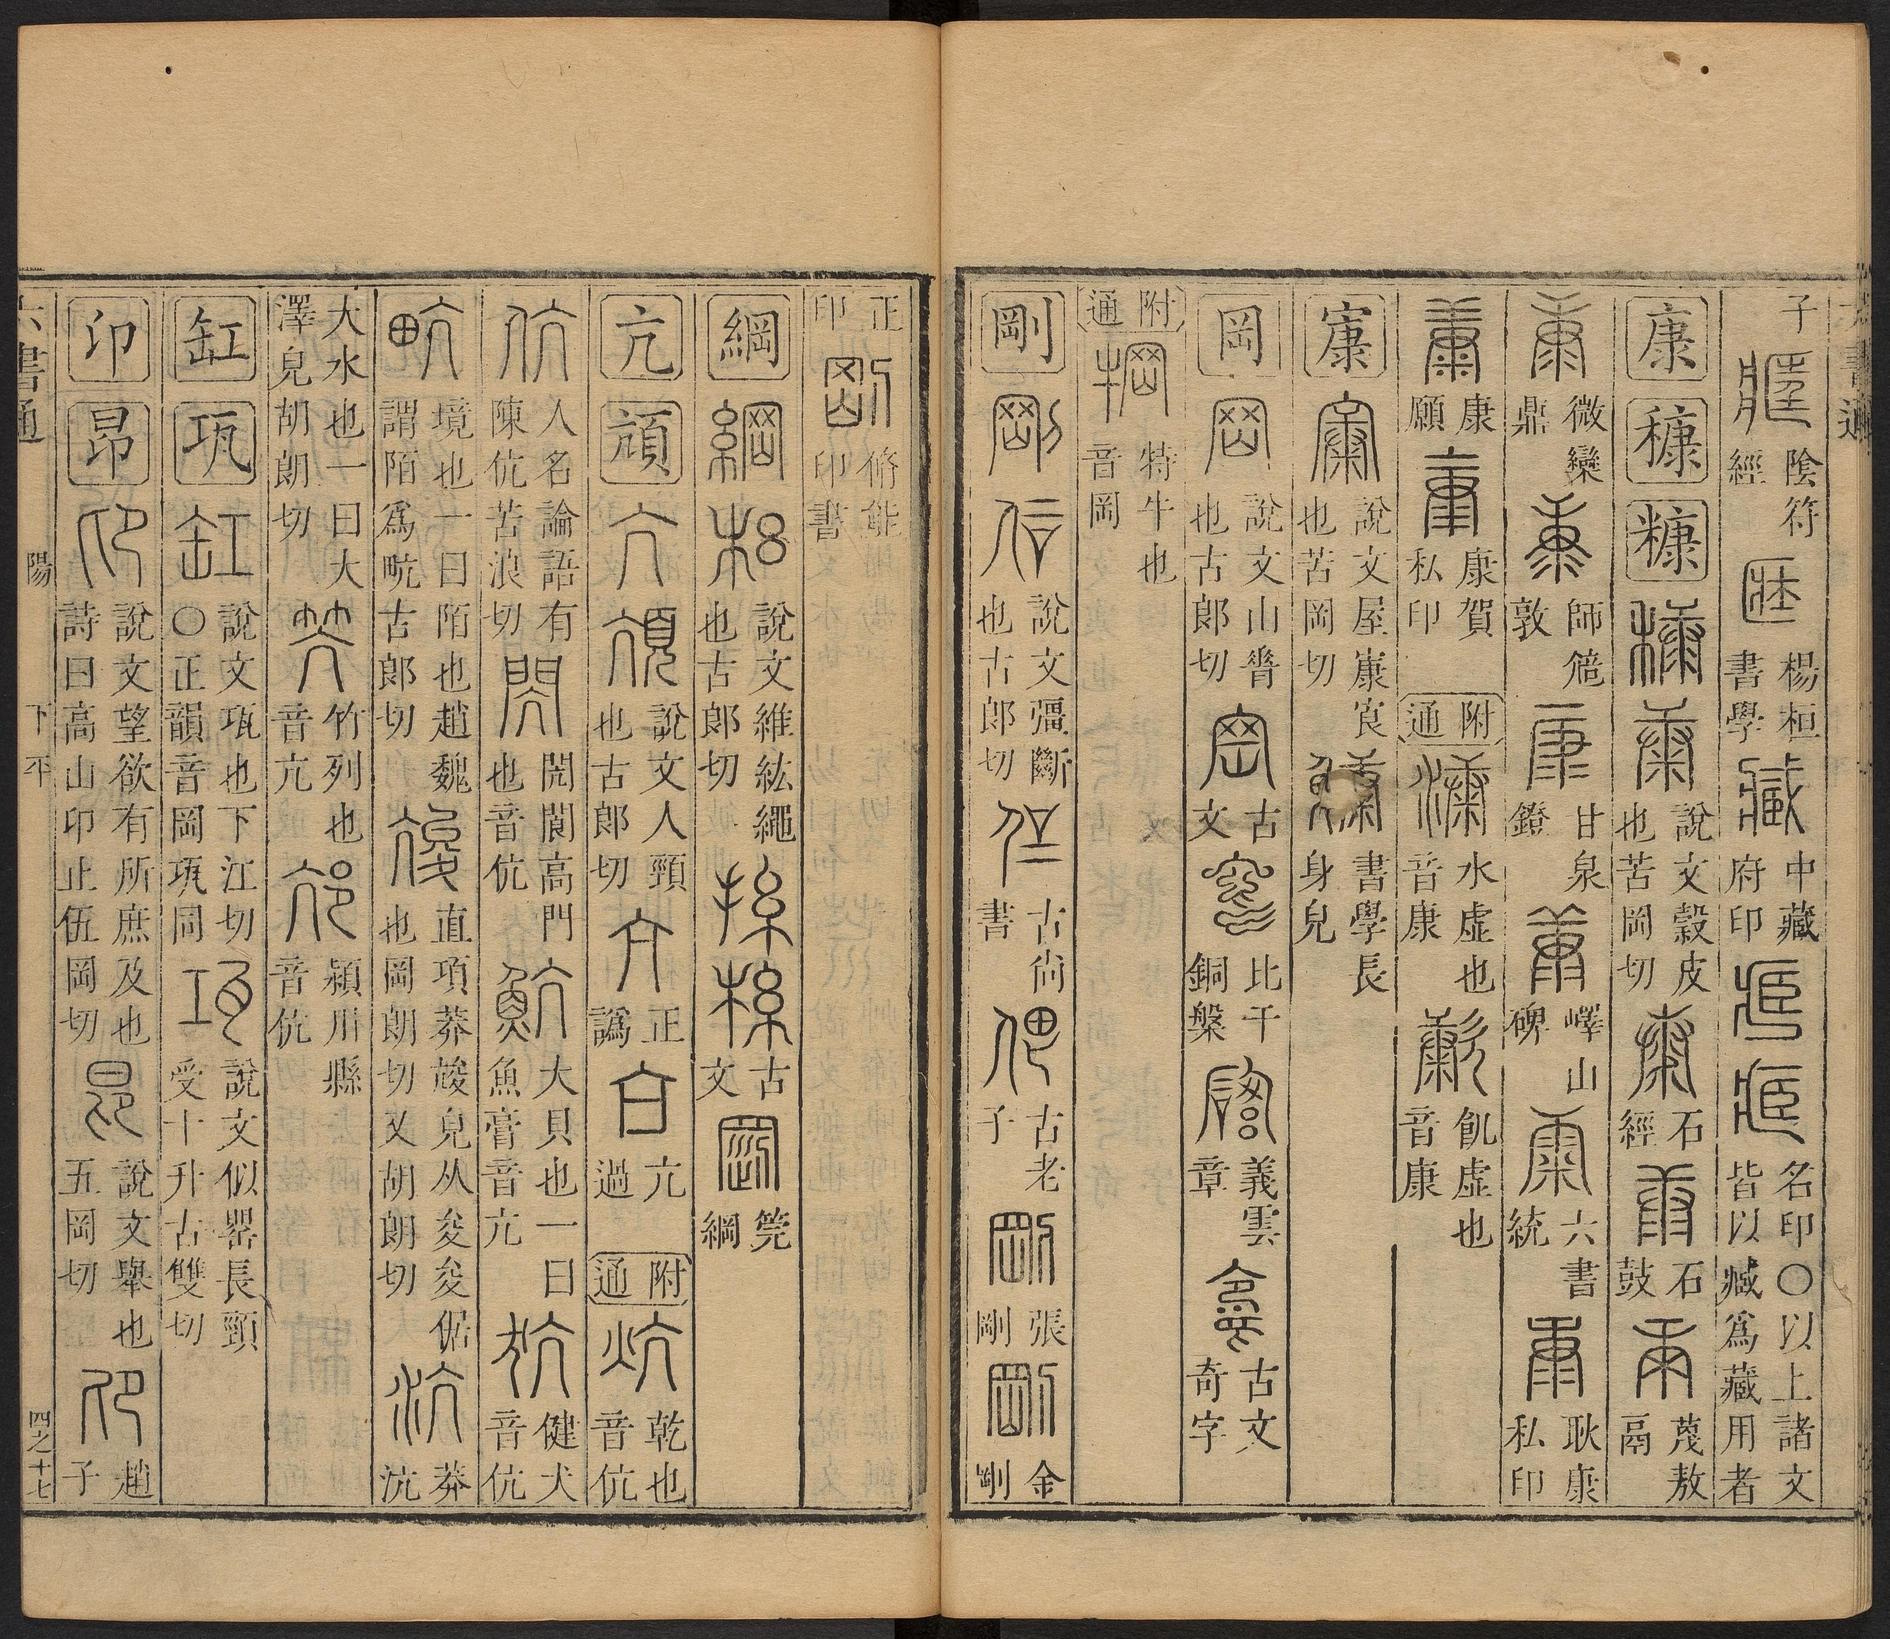 六書通
子 陰符經 楊桓書學 中藏府印 名印〇以上諸文皆以臧爲藏用者
康 穅 糠 說文穀皮也苦岡切 石經 石鼓 茂敖鬲
微欒鼎 師䖒敦 甘泉鐙 嶧山碑 六書統 耿康私印
康願 康賀私印 附通 水虛也音康 飢虛也音康
㝩 說文屋㝩㝗也苦岡切 書學長身皃
岡 說文山脊也古郎切 古文 比干銅槃 義雲章 古文奇字
附通 特牛也音岡
剛 說文彊斷也古郎切 古尚書 古老子 張剛 金剛
正印 脩能印書
綱 說文維紘繩也古郎切 古文 筦綱
亢 頏 說文人頸也古郎切 正譌 亢過 附通 乾也音伉
人名論語有陳伉苦浪切 閌閬高門也音伉 大貝也一曰魚膏音亢 健犬音伉
境也一曰陌也趙魏謂陌爲畖古郎切 直項莽䇏皃从夋夋倨也岡朗切又胡朗切 莽沆
大水也一曰大澤皃胡朗切 竹列也音亢 潁川縣音伉
缸 瓨 說文瓨也下江切〇正韻音岡瓨同 說文似罌長頸受十升古雙切
卬 昂 說文望欲有所庶及也詩曰高山卬止伍岡切 說文舉也五岡切 趙子
六書通 陽 下平 四之十七